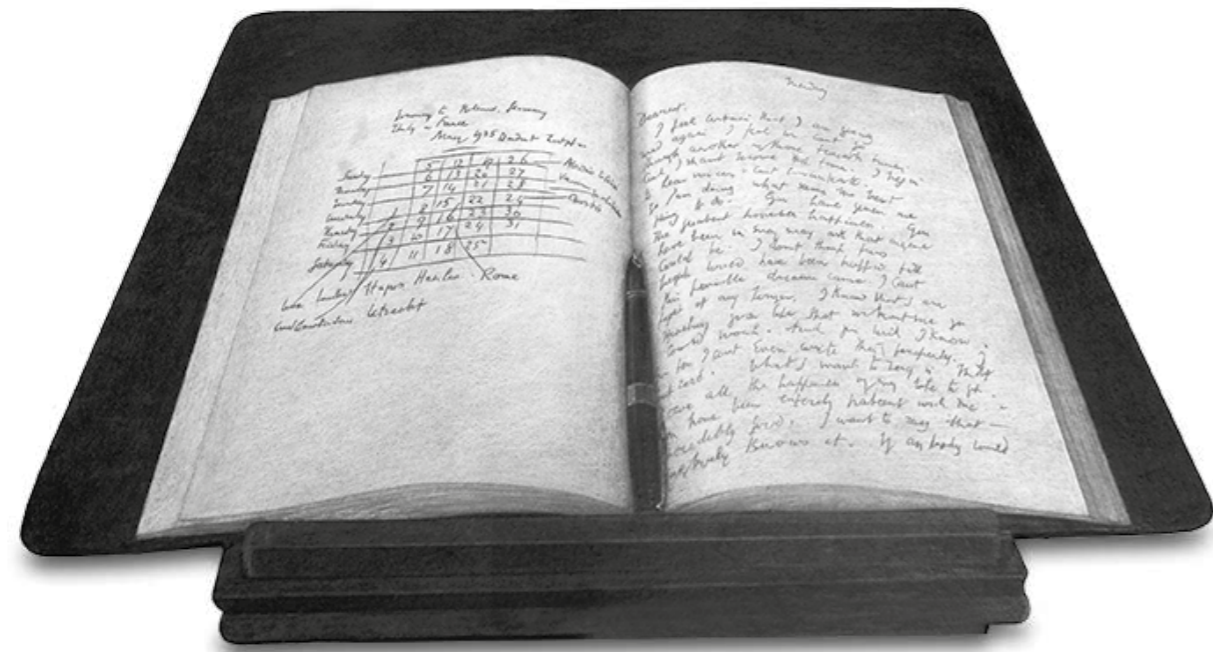 Journey to Holland, Germany
Italy & France
May 1935
Sunday 5 12 19 26
Monday 6 13 20 27
Tuesday 7 14 21 28
Wednesday 1 8 15 22 29
Thursday 2 9 16 23 30
Friday 3 10 17 24 31
Saturday 4 11 18 25
Rome
Utrecht
Tuesday
Dearest,
I feel certain that I am going
mad again. I feel we cant go
through another of those terrible times.
And I shant recover this time. I begin
to hear voices, & cant concentrate.
So I am doing what seems the best
thing to do. You have given me
the greatest possible happiness. You
have been in every way all that anyone
could be. I dont think two
people could have been happier till
this terrible disease came. I cant
fight it any longer, I know that I am
spoiling your life that without me you
could work. And you will I know.
You see I cant even write this properly. I
cant read. What I want to say is that
I owe all the happiness of my life to you.
You have been entirely patient with me &
incredibly good. I want to say that —
everybody knows it. If anybody could